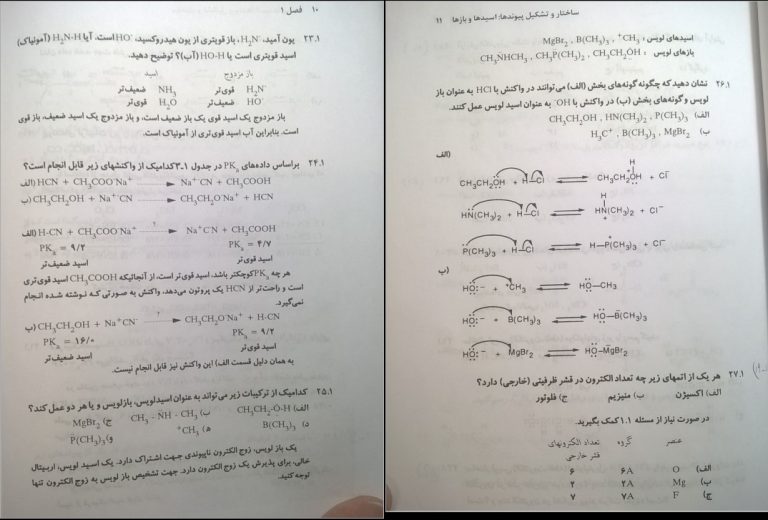 ۱۰ فصل ۱
۲۳.۱ یون آمید، H₂N⁻، باز قویتری از یون هیدروکسید، HO⁻ است. آیا H₂N-H (آمونیاک)
اسید قویتری است یا HO-H (آب)؟ توضیح دهید.
باز مزدوج اسید
H₂N⁻ قوی‌تر NH₃ ضعیف‌تر
HO⁻ ضعیف‌تر H₂O قوی‌تر
باز مزدوج یک اسید قوی یک باز ضعیف است، و باز مزدوج یک اسید ضعیف، باز قوی
است. بنابراین آب اسید قوی‌تری از آمونیاک است.
۲۴.۱ براساس داده‌های PKₐ در جدول ۱ـ۳ کدامیک از واکنشهای زیر قابل انجام است؟
الف) HCN + CH₃COO⁻Na⁺ → Na⁺⁻CN + CH₃COOH
ب) CH₃CH₂OH + Na⁺⁻CN → CH₃CH₂O⁻Na⁺ + HCN
الف) H-CN + CH₃COO⁻Na⁺ →? Na⁺C⁻N + CH₃COOH
PKₐ = ۹/۲ PKₐ = ۴/۷
اسید ضعیف‌تر اسید قوی‌تر
هر چه PKₐ کوچکتر باشد، اسید قوی‌تر است، از آنجائیکه CH₃COOH اسید قوی‌تری
است و راحت‌تر از HCN یک پروتون می‌دهد، واکنش به صورتی که نوشته شده انجام
نمی‌گیرد.
ب) CH₃CH₂OH + Na⁺CN⁻ →? CH₃CH₂O⁻Na⁺ + H-CN
PKₐ = ۱۶/۰ PKₐ = ۹/۲
اسید ضعیف‌تر اسید قوی‌تر
به همان دلیل قسمت الف) این واکنش نیز قابل انجام نیست.
۲۵.۱ کدامیک از ترکیبات زیر می‌تواند به عنوان اسیدلویس، بازلویس و یا هر دو عمل کند؟
الف) CH₃CH₂-Ö-H ب) CH₃ - N̈H - CH₃ ج) MgBr₂
د) B(CH₃)₃ ه) ⁺CH₃ و) P̈(CH₃)₃
یک باز لویس، زوج الکترون ناپیوندی جهت اشتراک دارد. یک اسید لویس، اربیتال
خالی، برای پذیرش یک زوج الکترون دارد. جهت تشخیص باز لویس به زوج الکترون تنها
توجه کنید.
ساختار و تشکیل پیوندها: اسیدها و بازها ۱۱
اسیدهای لویس: MgBr₂ , B(CH₃)₃ , ⁺CH₃
بازهای لویس: CH₃N̈HCH₃ , CH₃P̈(CH₃)₂ , CH₃CH₂ÖH
۲۶.۱ نشان دهید که چگونه گونه‌های بخش (الف) می‌توانند در واکنش با HCl به عنوان باز
لویس و گونه‌های بخش (ب) در واکنش با OH⁻ به عنوان اسید لویس عمل کنند.
الف) CH₃CH₂OH , HN(CH₃)₂ , P(CH₃)₃
ب) H₃C⁺ , B(CH₃)₃ , MgBr₂
الف)
H
CH₃CH₂ÖH + H—Cl ⇌ CH₃CH₂ÖH⁺ + Cl⁻
H
HN̈(CH₃)₂ + H—Cl ⇌ HN⁺(CH₃)₂ + Cl⁻
P̈(CH₃)₃ + H—Cl ⇌ H—P⁺(CH₃)₃ + Cl⁻
ب)
HÖ:⁻ + ⁺CH₃ ⇌ HÖ—CH₃
HÖ:⁻ + B(CH₃)₃ ⇌ HÖ—B⁻(CH₃)₃
HÖ:⁻ + MgBr₂ ⇌ HÖ—M⁻gBr₂
۲۷.۱ هر یک از اتمهای زیر چه تعداد الکترون در قشر ظرفیتی (خارجی) دارد؟
الف) اکسیژن ب) منیزیم ج) فلوئور
در صورت نیاز از مسئله ۱.۱ کمک بگیرید.
عنصر گروه تعداد الکترونهای
قشر خارجی
الف) O ۶A ۶
ب) Mg ۲A ۲
ج) F ۷A ۷